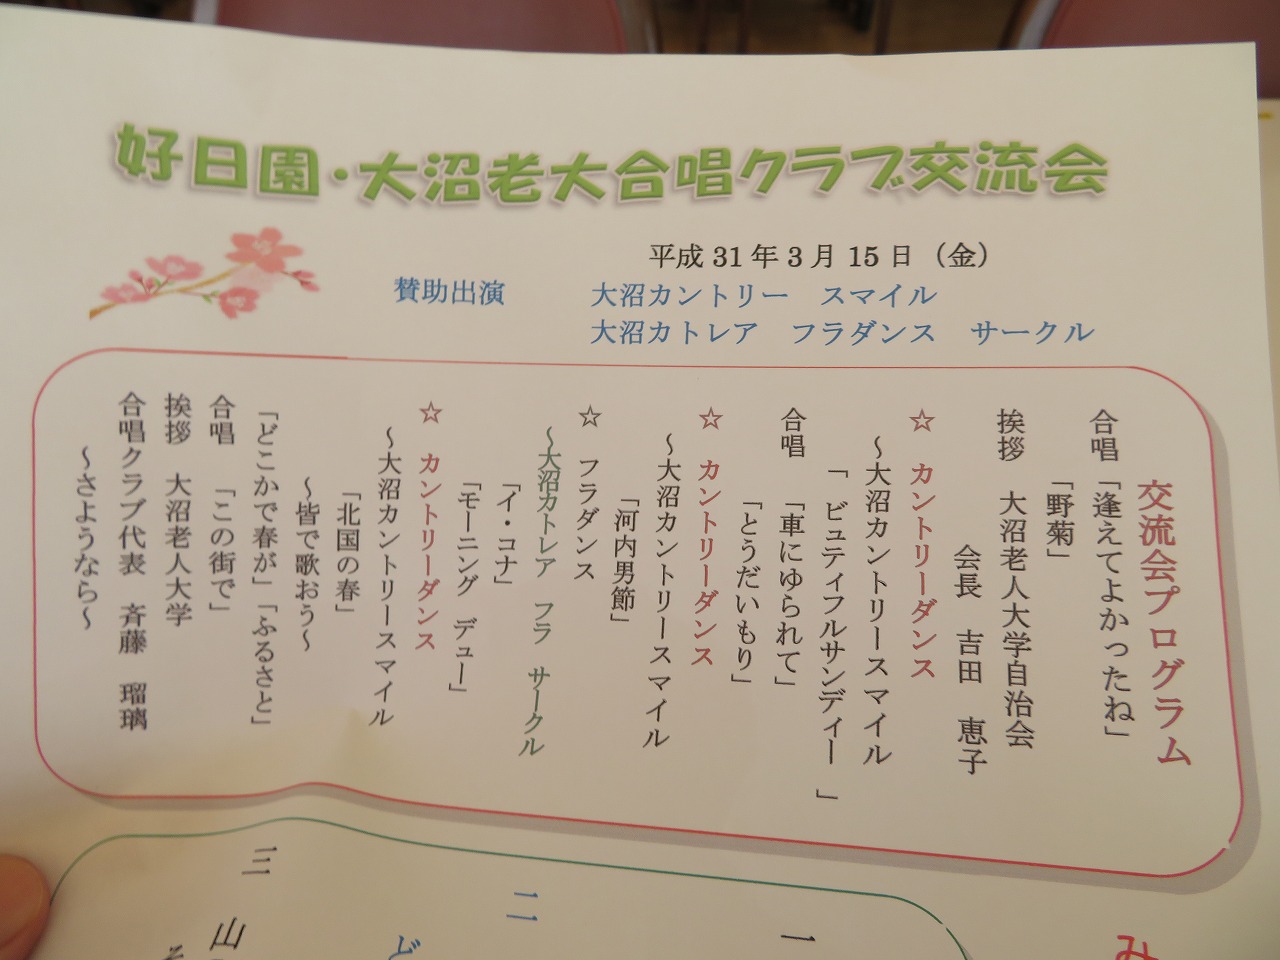 好日園・大沼老大合唱クラブ交流会
平成31年3月15日（金）
賛助出演　大沼カントリー　スマイル
大沼カトレア　フラダンス　サークル
交流会プログラム
合唱「逢えてよかったね」
「野菊」
挨拶　大沼老人大学自治会
会長　吉田　恵子
☆　カントリーダンス
～大沼カントリースマイル
「ビュティフルサンディー　」
合唱　「車にゆられて」
「とうだいもり」
☆　カントリーダンス
～大沼カントリースマイル
「河内男節」
☆　フラダンス
～大沼カトレア　フラ　サークル
「イ・コナ」
「モーニング　デュー」
☆　カントリーダンス
～大沼カントリースマイル
「北国の春」
～皆で歌おう～
「どこかで春が」「ふるさと」
合唱　「この街で」
挨拶　大沼老人大学
合唱クラブ代表　斉藤　瑠璃
～さようなら～
み
一
二
ど
三
山
そ